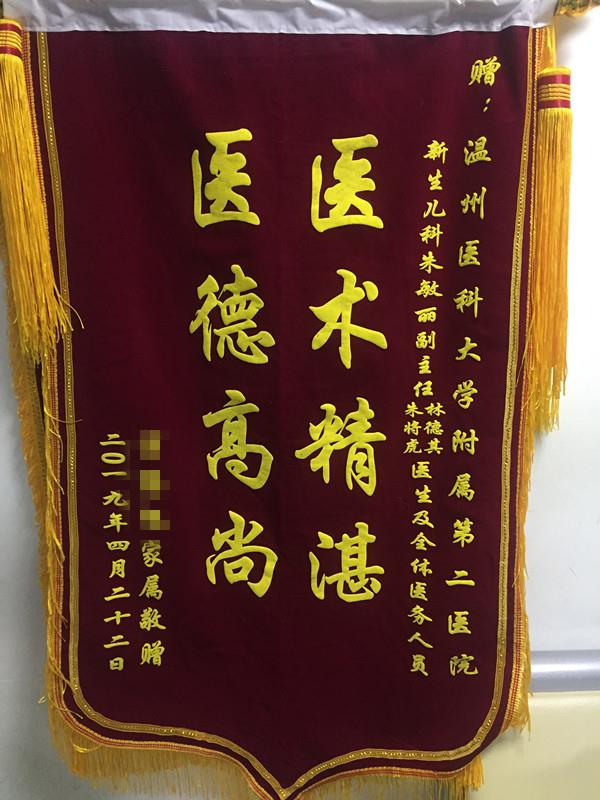 赠：温州医科大学附属第二医院
新生儿科朱敏丽副主任林德其朱将虎医生及全体医务人员
医术精湛
医德高尚
家属敬赠
二〇一九年四月二十二日